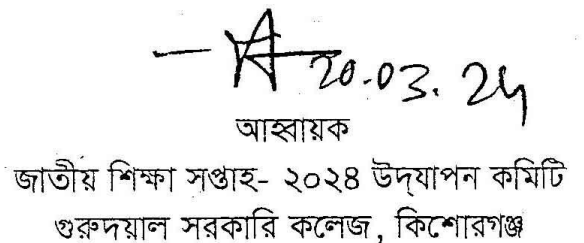 20.03.24
আহ্বায়ক
জাতীয় শিক্ষা সপ্তাহ- ২০২৪ উদ্‌যাপন কমিটি
গুরুদয়াল সরকারি কলেজ, কিশোরগঞ্জ